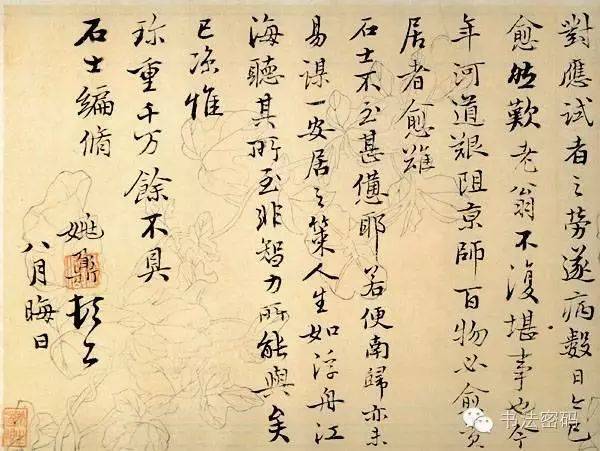 對應試者之勞遂病數日今已
愈然歎老翁不復堪事也今
年河道艱阻京師百物必愈貴
居者愈難
石士不至甚憊耶若便南歸亦未
易謀一安居之策人生如浮舟江
海聽其所至非智力所能與矣
已涼惟
珍重千万餘不具
石士編脩
姚鼐頓首
八月晦日
书法密码